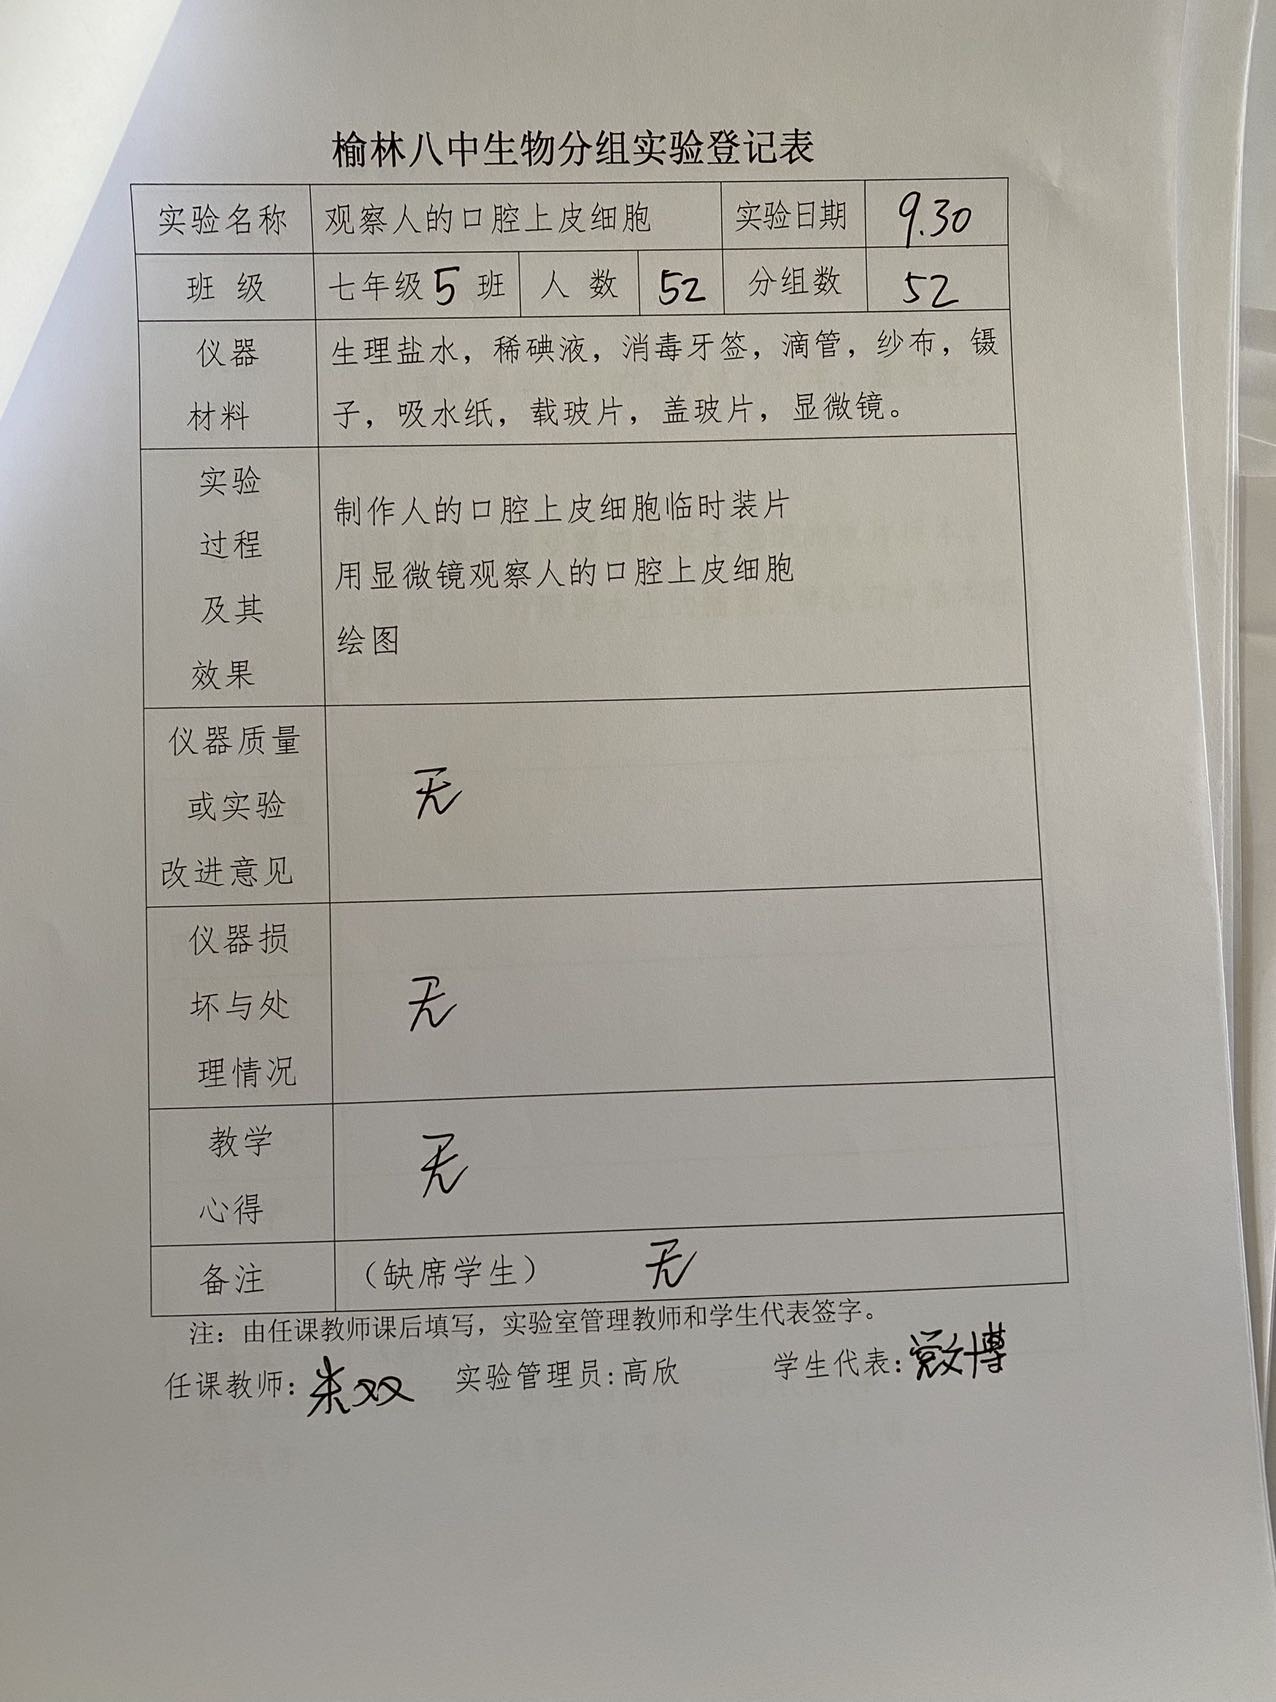 榆林八中生物分组实验登记表
实验名称 观察人的口腔上皮细胞 实验日期 9.30
班 级 七年级 5 班 人 数 52 分组数 52
仪器 生理盐水，稀碘液，消毒牙签，滴管，纱布，镊
材料 子，吸水纸，载玻片，盖玻片，显微镜。
实验
制作人的口腔上皮细胞临时装片
过程
用显微镜观察人的口腔上皮细胞
及其
绘图
效果
仪器质量
或实验 无
改进意见
仪器损
坏与处 无
理情况
教学
无
心得
备注 （缺席学生） 无
注：由任课教师课后填写，实验室管理教师和学生代表签字。
任课教师：朱双 实验管理员:高欣 学生代表：党文博